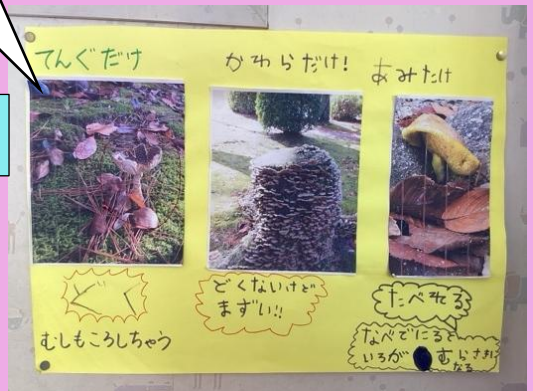 てんぐだけ
かわらだけ!
あみたけ
どく
むしもころしちゃう
どくないけど
まずい!!
たべれる
なべでにると
いろが むらさきに
なる